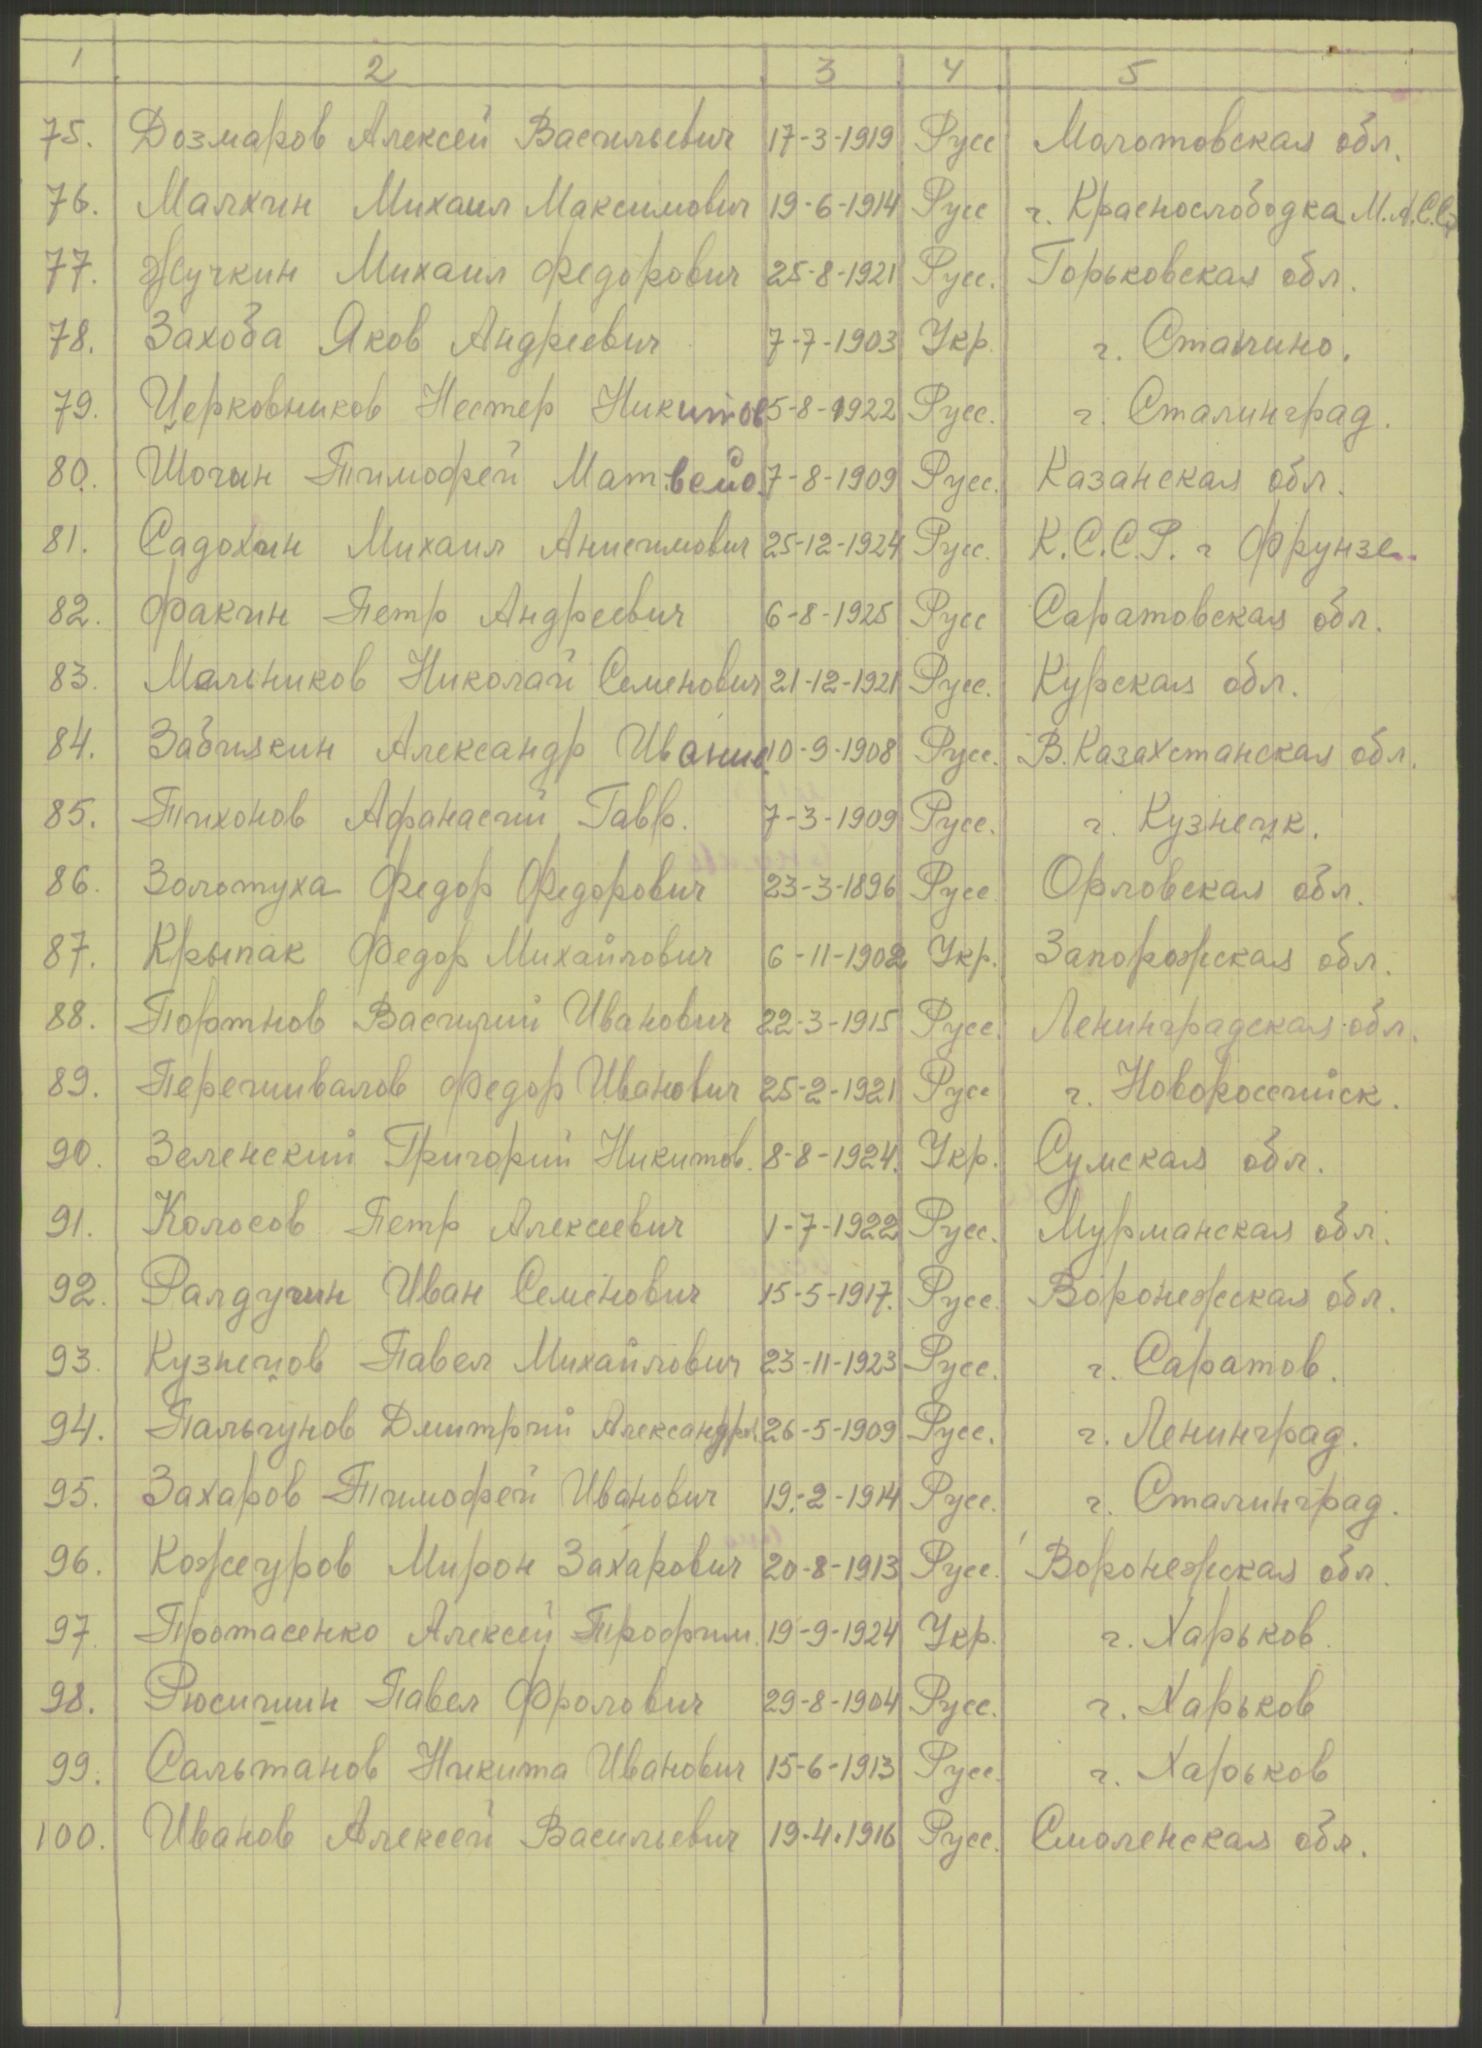 1 2 3 4 5
75. Дозмаров Алексей Васильевич 17-3-1919 Русс Молотовская обл.
76. Малхин Михаил Максимович 19-6-1914 Русс г. Краснослободка М.А.С.С.
77. Жучкин Михаил Федорович 25-8-1921 Русс. Горьковская обл.
78. Захоба Яков Андреевич 7-7-1903 Укр. г. Сталино.
79. Церковников Нестер Никитов 5-8-1922 Русс. г. Сталинград.
80. Шочин Тимофей Матвейо. 7-8-1909 Русс. Казанская обл.
81. Садохин Михаил Анисимович 25-12-1924 Русс. К.С.С.Р. г Фрунзе.
82. Факин Петр Андреевич 6-8-1925 Русс Саратовская обл.
83. Мальников Николай Семенович 21-12-1921 Русс. Курская обл.
84. Забилкин Александр Ивание. 10-9-1908 Русс. В.Казахстанская обл.
85. Тихонов Афанасий Гавр. 7-3-1909 Русс. г. Кузнецк.
86. Золотуха Федор Федорович 23-3-1896 Русс Орловская обл.
87. Крыпак Федор Михайлович 6-11-1902 Укр. Запорожская обл.
88. Портнов Василий Иванович 22-3-1915 Русс. Ленинградская обл.
89. Перешивалов Федор Иванович 25-2-1921 Русс г. Новороссийск.
90. Зеленский Григорий Никитов. 8-8-1924. Укр. Сумская обл.
91. Колосов Петр Алексеевич 1-7-1922 Русс. Мурманская обл.
92. Ралдугин Иван Семенович 15-5-1917. Русс. Воронежская обл.
93. Кузнецов Павел Михайлович 23-11-1923 Русс. г. Саратов.
94. Пальгунов Дмитрий Александров. 26-5-1909 Русс. г. Ленинград.
95. Захаров Тимофей Иванович 19.-2-1914 Русс. г. Сталинград.
96. Кожеуров Мирон Захарович 20-8-1913 Русс. Воронежская обл.
97. Протасенко Алексей Трофим. 19-9-1924 Укр. г. Харьков.
98. Рюсишин Павел Фролович 29-8-1904 Русс. г. Харьков
99. Сальтанов Никита Иванович 15-6-1913 Русс. г. Харьков
100. Иванов Алексей Васильевич 19.4.1916 Русс. Смоленская обл.